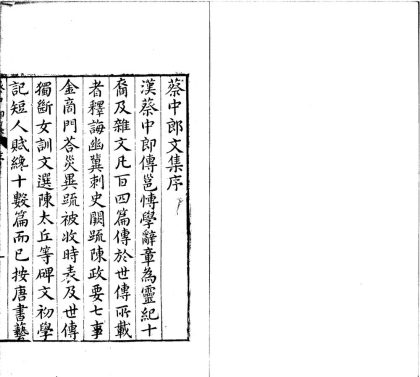 蔡中郎文集序
漢蔡中郎傳邕博學辭章為靈紀十
意及雜文凡百四篇傳於世傳所載
者釋誨幽冀刺史闕疏陳政要七事
金商門荅災異疏被收時表及世傳
獨斷女訓文選陳太丘等碑文初學
記短人賦纔十數篇而已按唐書藝